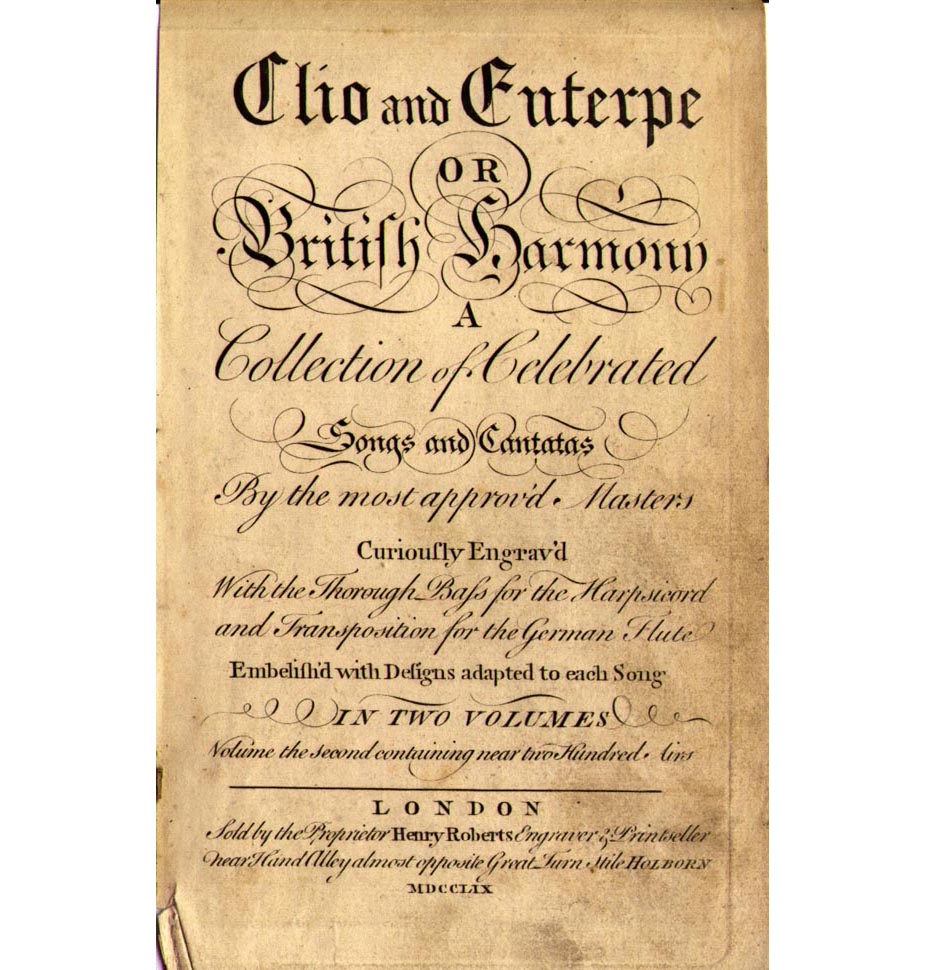 Clio and Euterpe
OR
Britiſh Harmony
A
Collection of Celebrated
Songs and Cantatas
By the most approv'd Masters
Curiouſly Engrav'd
With the Thorough Baſs for the Harpsicord
and Transposition for the German Flute
Embeliſh'd with Deſigns adapted to each Song
IN TWO VOLUMES
Volume the second containing near two Hundred Airs
LONDON
Sold by the Proprietor Henry Roberts Engraver & Printseller
near Hand Alley almost opposite Great Turn Stile HOLBORN
MDCCLIX